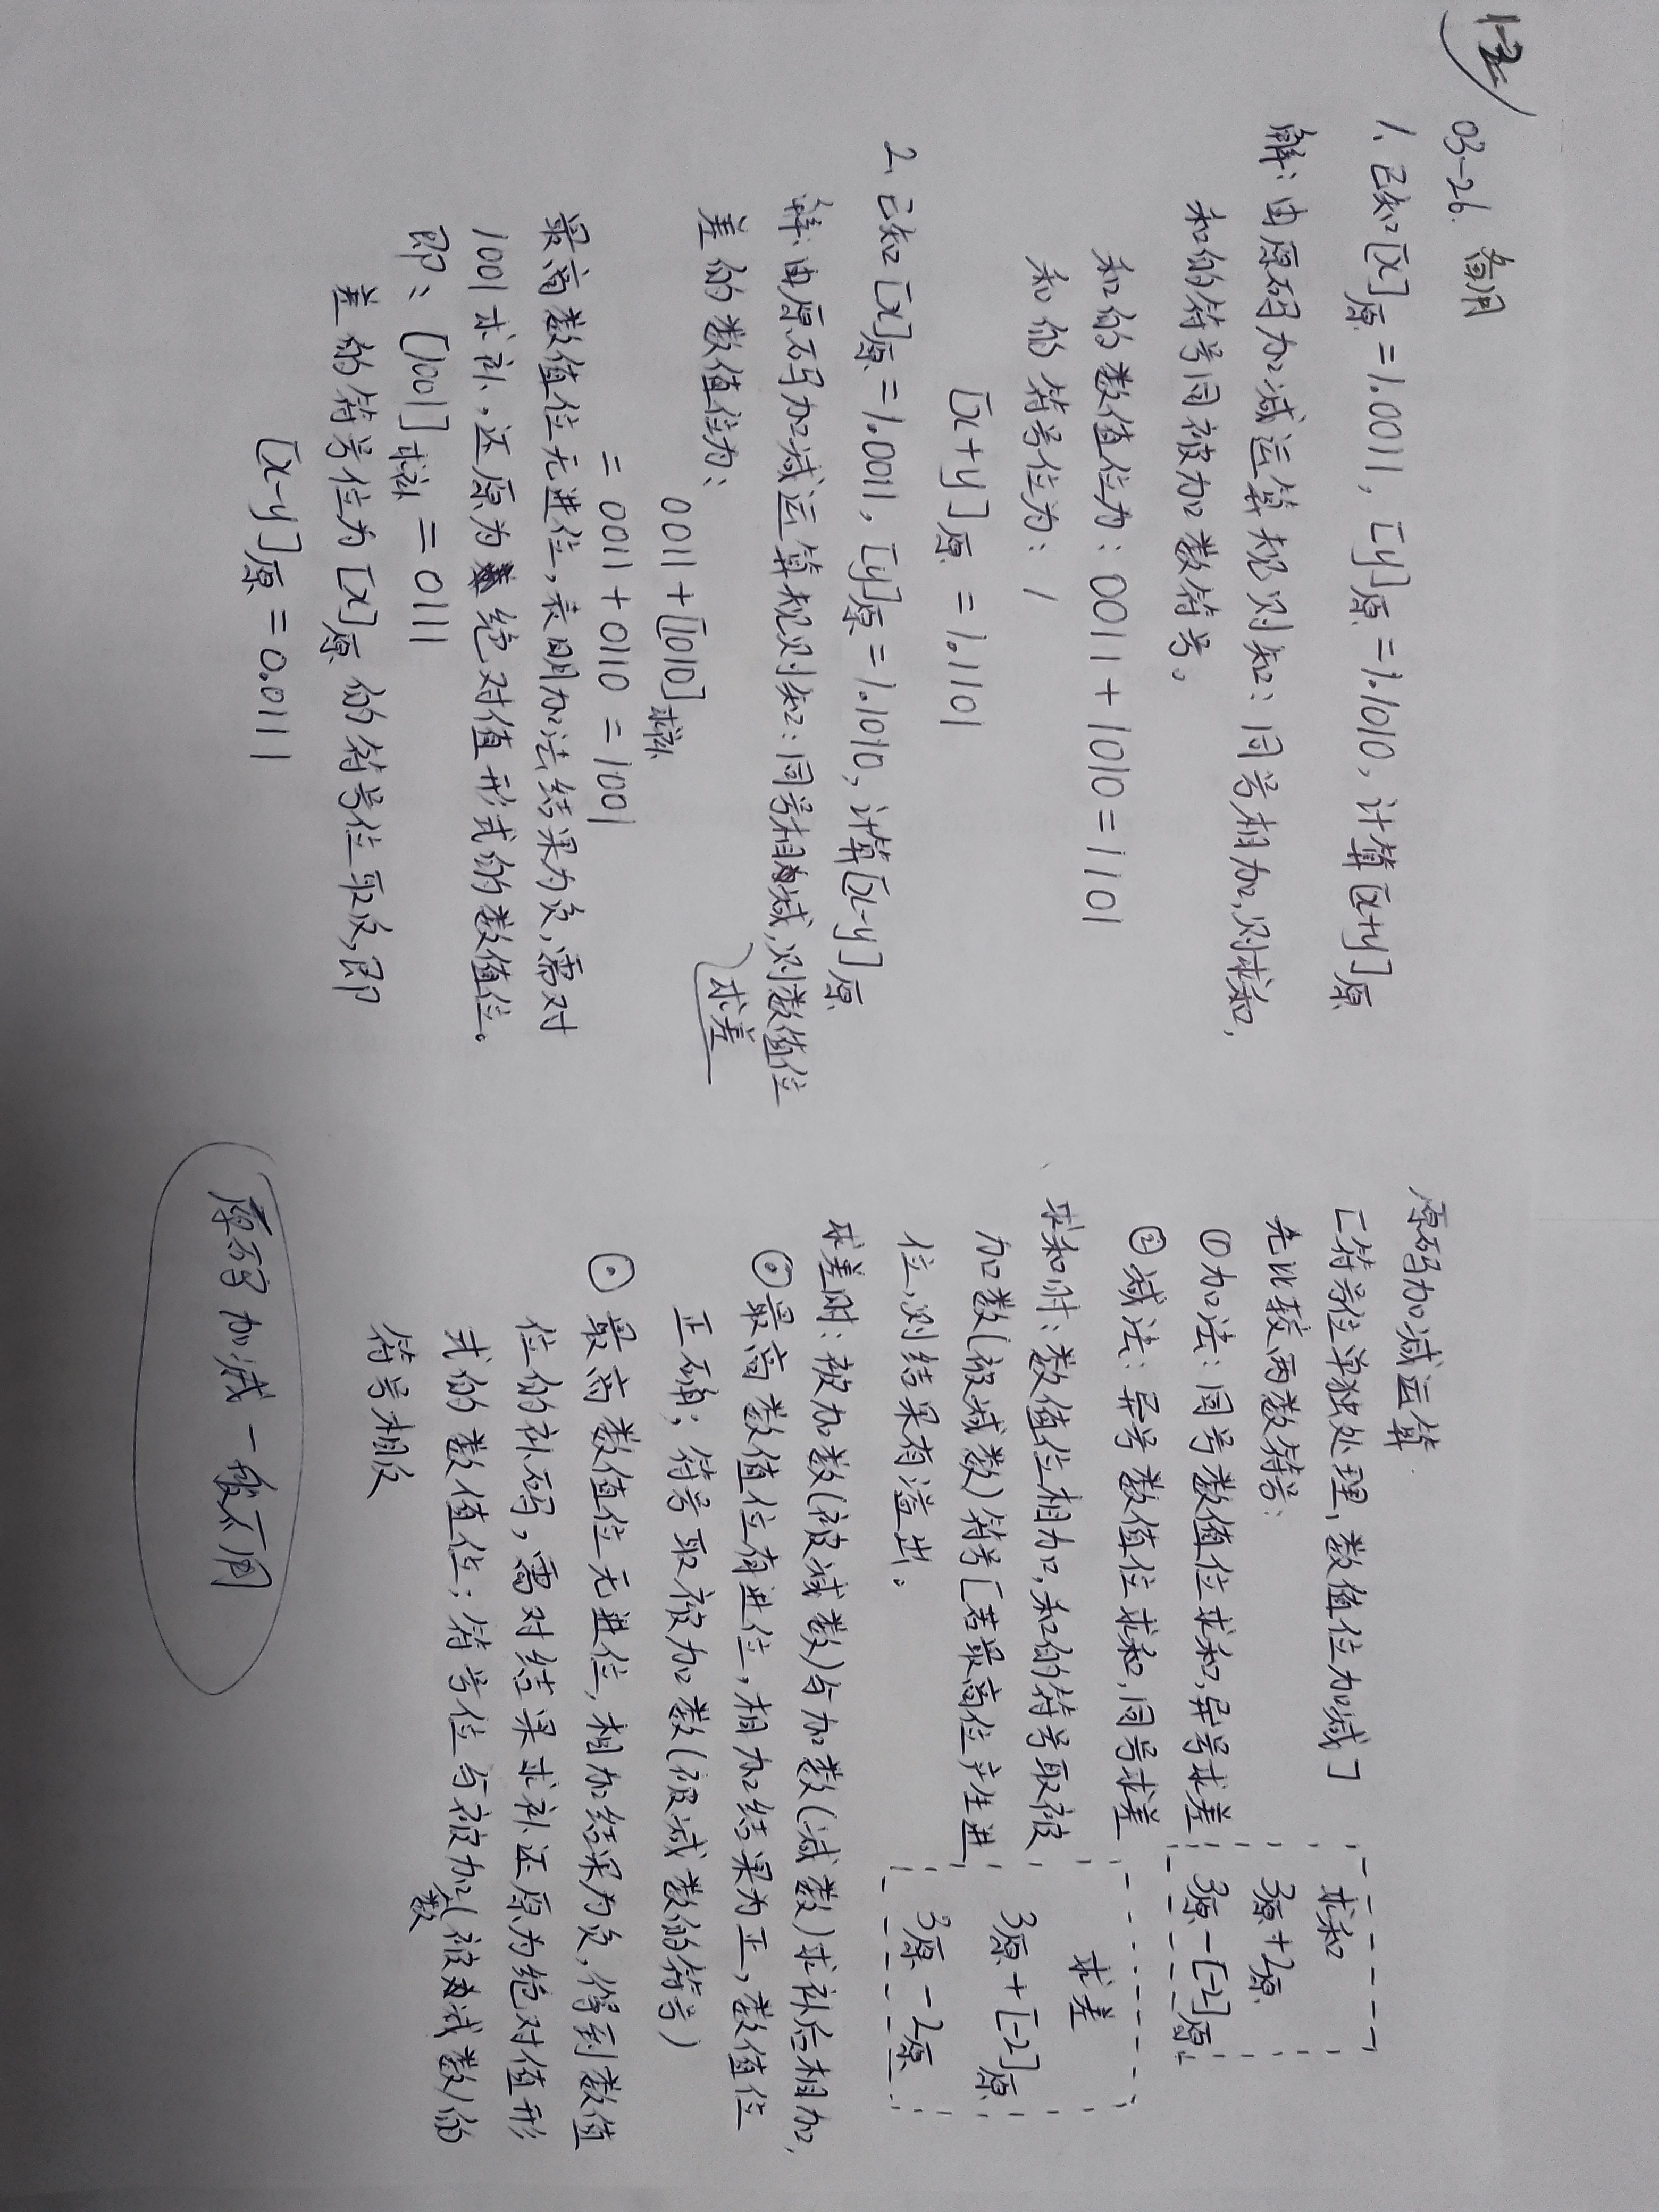 1-2
03-26. 备用
1、已知[x]原=1.0011, [y]原=1.1010, 计算[x+y]原
解: 由原码加减运算规则知: 同号相加,则求和,
和的符号同被加数符号。
和的数值位为: 0011+1010=1101
和的符号位为: 1
[x+y]原 = 1.1101
2、已知[x]原=1.0011, [y]原=1.1010, 计算[x-y]原
解: 由原码加减运算规则知: 同号相减, 则数值位
求差
差的数值位为:
0011+[1010]求补
= 0011+0110 = 1001
最高数值位无进位, 表明加法结果为负, 需对
1001求补, 还原为绝对值形式的数值位。
即: [1001]求补 = 0111
差的符号位为[x]原的符号位取反, 即
[x-y]原 = 0.0111
原码加减运算
[符号位单独处理, 数值位加减]
先比较两数符号:
①加法: 同号数值位求和, 异号求差
②减法: 异号数值位求和, 同号求差
求和时: 数值位相加, 和的符号取被
加数(被减数)符号[若最高位产生进
位, 则结果有溢出。
求差时: 被加数(被减数)与加数(减数)求补后相加,
⊙最高数值位有进位, 相加结果为正, 数值位
正确; 符号取被加数(被减数的符号)
⊙ 最高数值位无进位, 相加结果为负, 得到数值
位的补码, 需对结果求补还原为绝对值形
式的数值位; 符号位与被加数(被减数)的
符号相反
求和
3原+2原
3原-[-2]原
求差
3原+[-2]原
3原-2原
原码加减一般不用